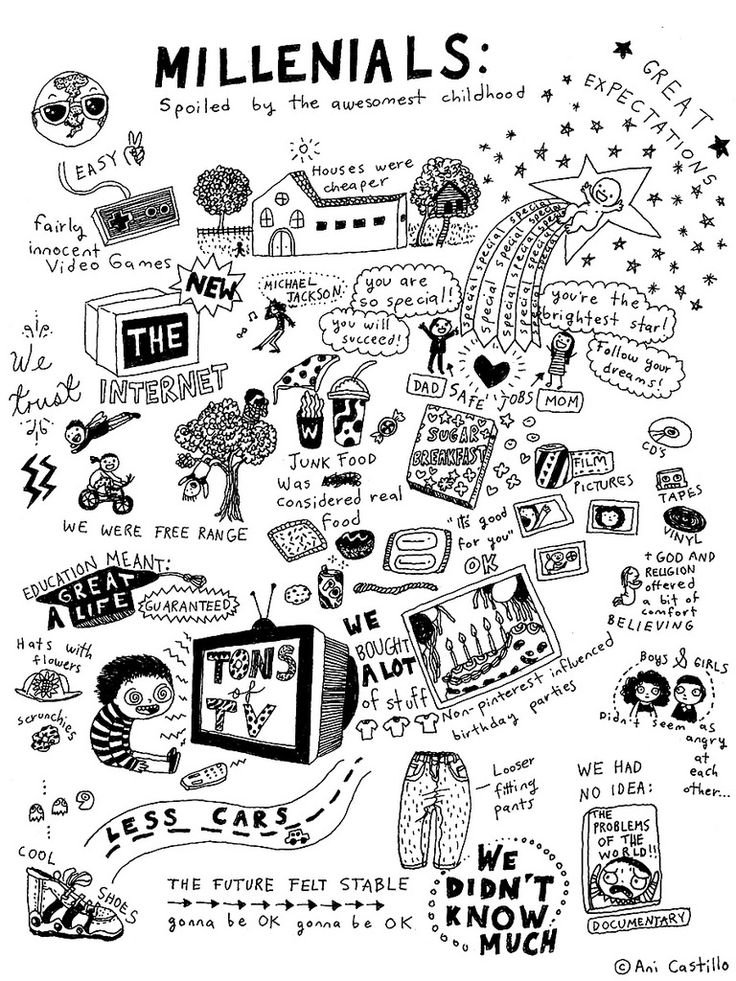 MILLENIALS:
Spoiled by the awesomest childhood
GREAT
EXPECTATIONS
EASY
fairly
innocent
Video Games
Houses were
cheaper
special special special
special special special special
special special special special
special special special
NEW
THE
INTERNET
MICHAEL
JACKSON
you are
so special!!
you will
succeed!
you're the
brightest star!
Follow your
dreams!
DAD
SAFE JOBS
MOM
We
trust
W
JUNK FOOD
Was
considered real
food
SUGAR
BREAKFAST
"It's good
for you"
OK
FILM
PICTURES
CD'S
TAPES
VINYL
WE WERE FREE RANGE
+ GOD AND
RELIGION
offered
a bit of
comfort
BELIEVING
EDUCATION MEANT:
GREAT
A LIFE
GUARANTEED
Hats with
flowers
scrunchies
TONS
of
TV
WE
BOUGHT
A LOT
of stuff
Non-pinterest influenced
birthday parties
BOYS & GIRLS
Didn't seem as
angry
at
each
other...
LESS CARS
Looser
fitting
pants
WE HAD
NO IDEA:
THE
PROBLEMS
OF THE
WORLD!!
DOCUMENTARY
COOL
SHOES
THE FUTURE FELT STABLE
gonna be OK gonna be OK
WE
DIDN'T
KNOW
MUCH
© Ani Castillo